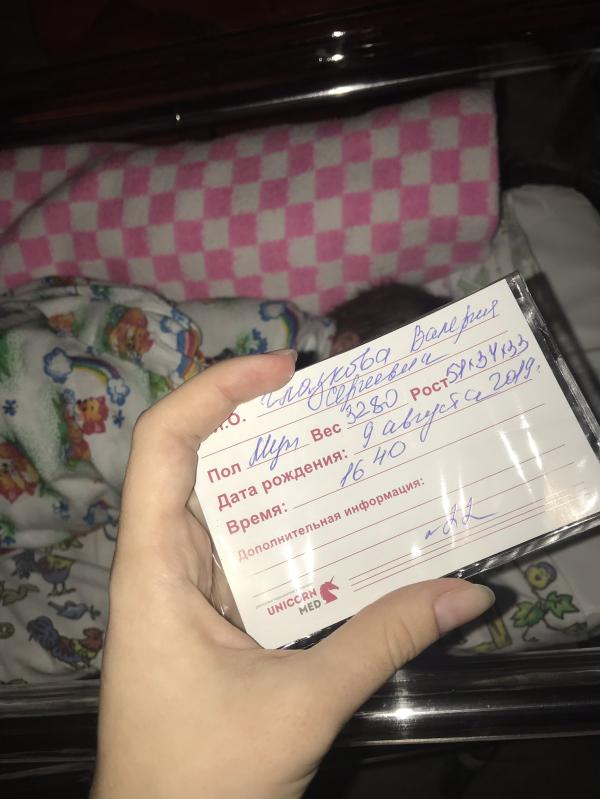 И.О. Гладкова Валерия
Сергеевич
Пол Муж Вес 3280 Рост 51×34×33
Дата рождения: 9 августа 2019г.
Время: 16 40
Дополнительная информация:
UNICORN
MED